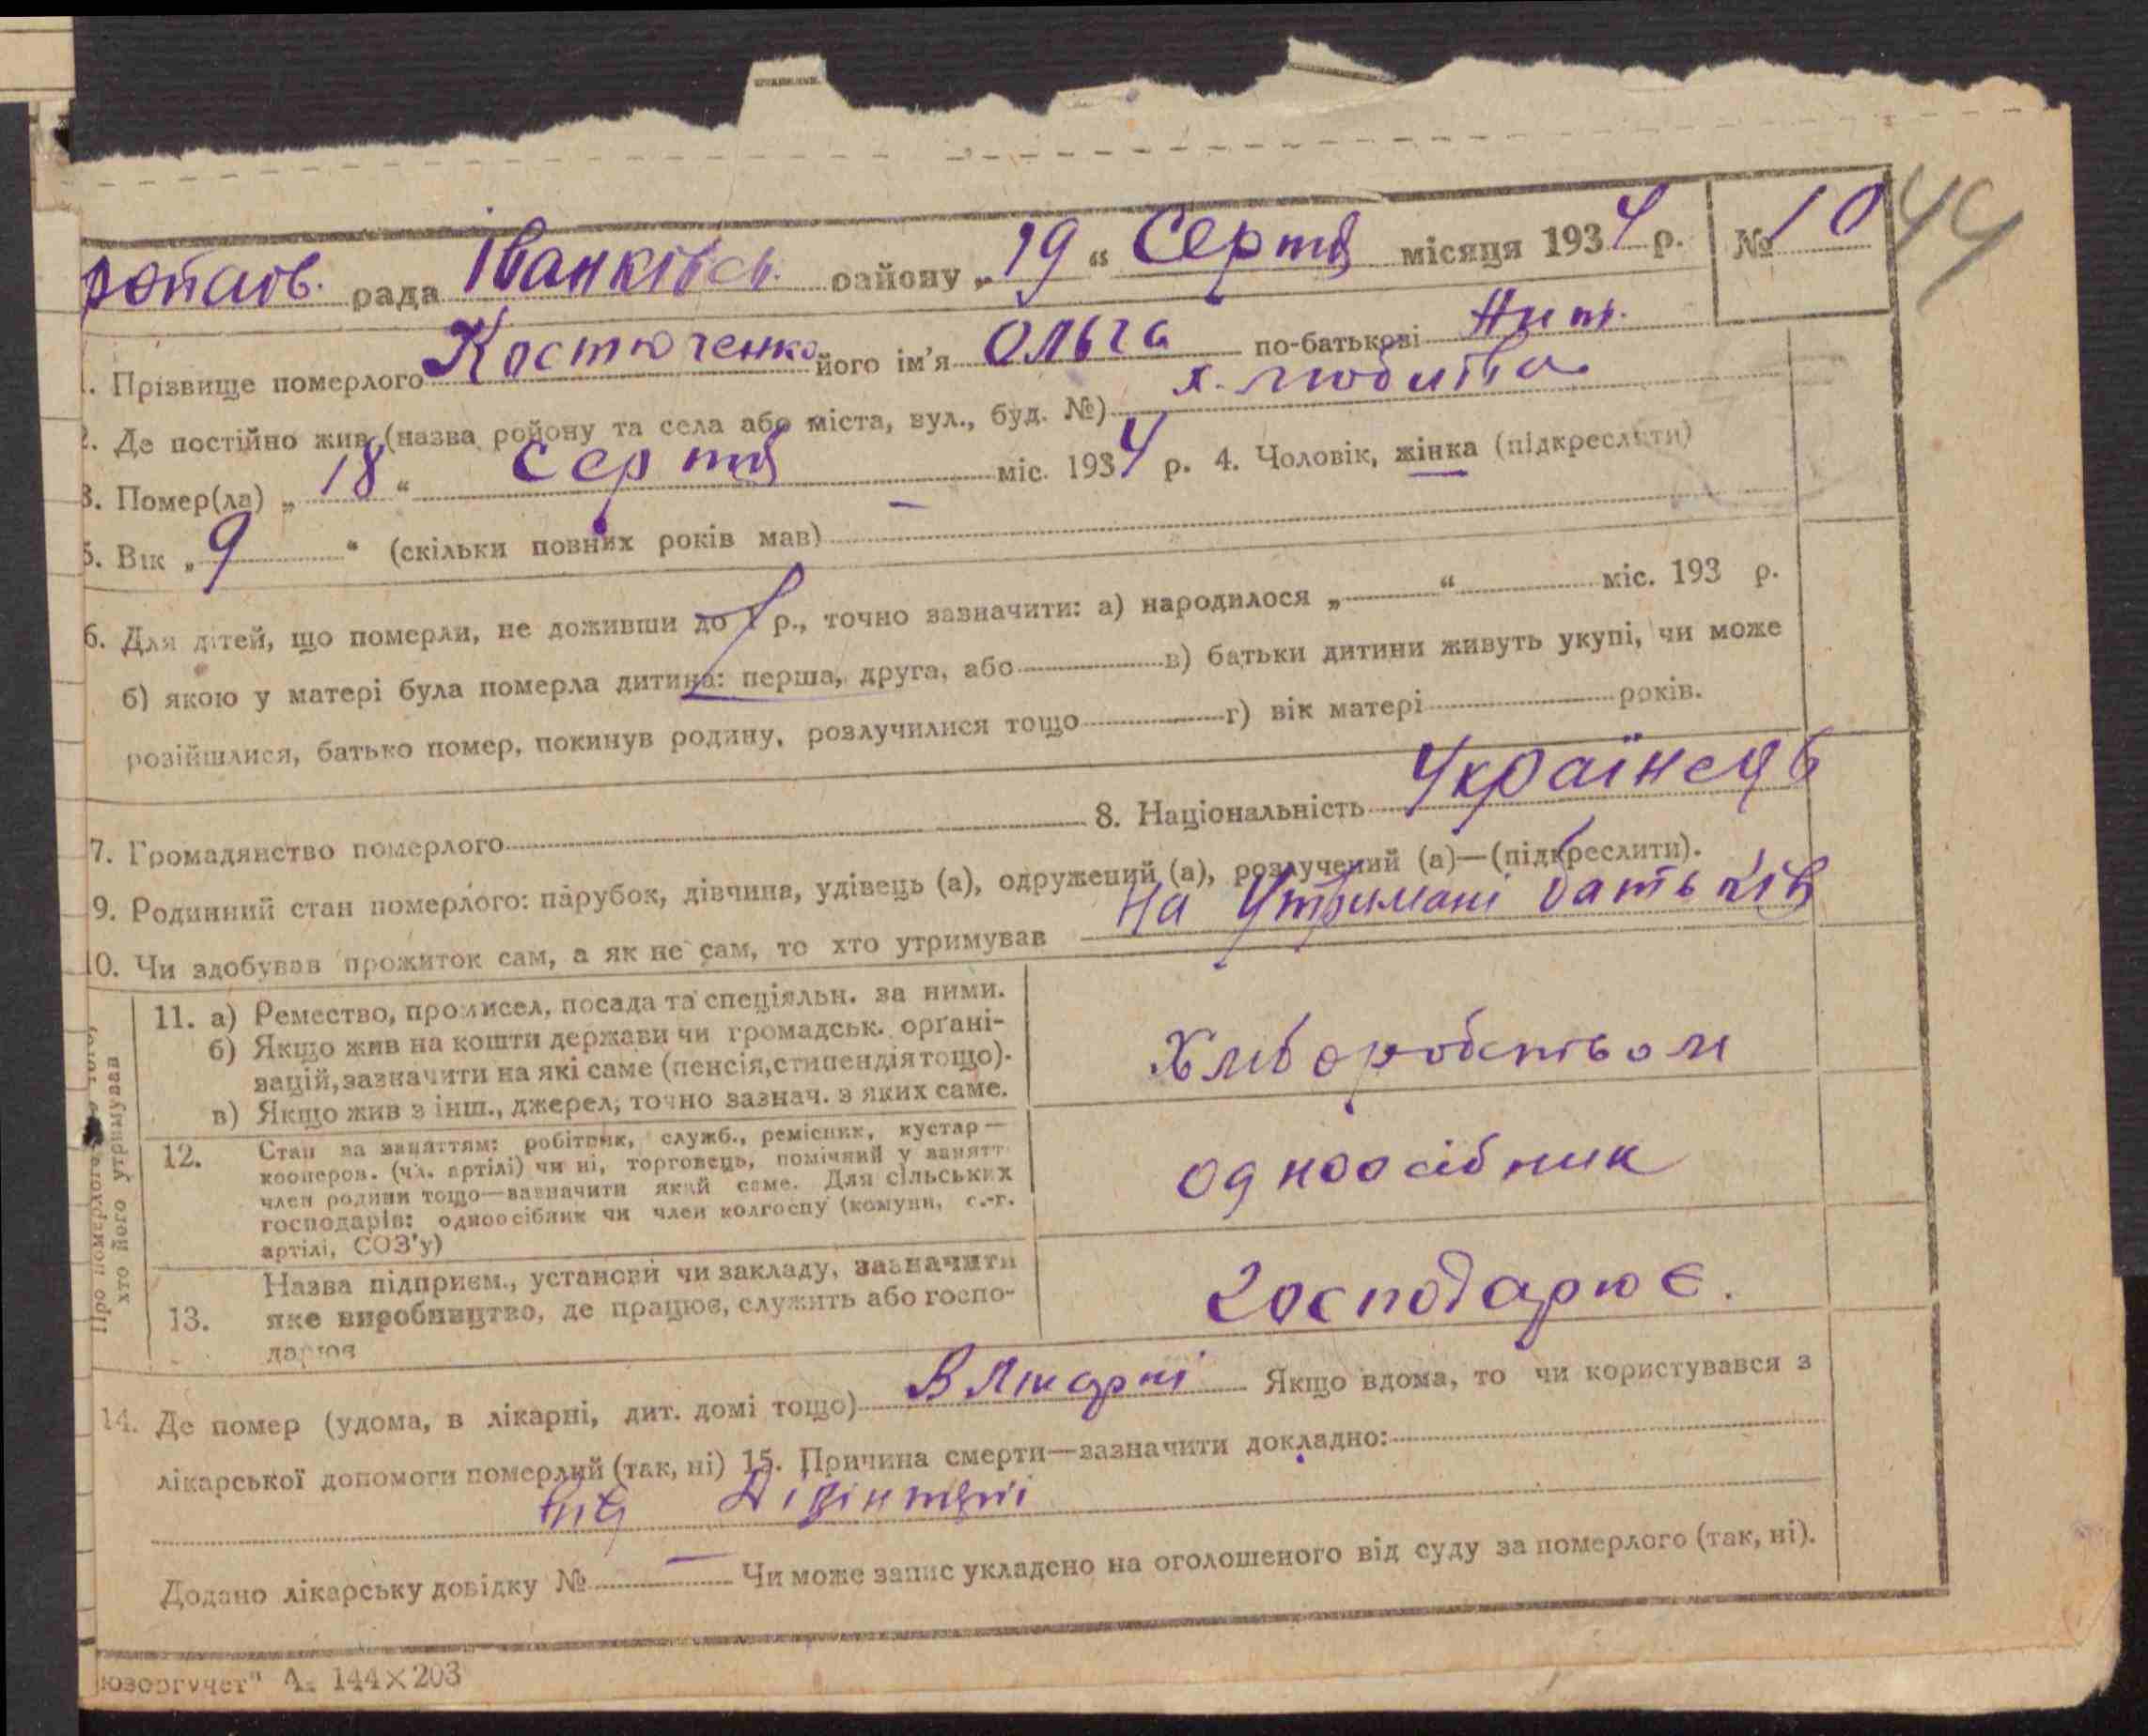 рада Іванківсь. району „19“ Серпня місяця 1934 р. № 10 44
1. Прізвище померлого Костюченко його ім'я Ольга по-батькові
2. Де постійно жив (назва ройону та села або міста, вул., буд. №) х.
3. Помер(ла) „18“ Серпня міс. 1934 р. 4. Чоловік, жінка (підкреслити)
5. Вік „9“ (скільки повних років мав) —
6. Для дітей, що померли, не доживши до 1 р., точно зазначити: а) народилося „ “ міс. 193 р.
б) якою у матері була померла дитина: перша, друга, або в) батьки дитини живуть укупі, чи може
розійшлися, батько помер, покинув родину, розлучилися тощо г) вік матері років.
7. Громадянство померлого 8. Національність Українець
9. Родинний стан померлого: парубок, дівчина, удівець (а), одружений (а), розлучений (а)—(підкреслити).
10. Чи здобував прожиток сам, а як не сам, то хто утримував На Утримані батьків
Про померлого хто його утримував
11. а) Ремество, промисел, посада та спеціяльн. за ними.
б) Якщо жив на кошти держави чи громадськ. орґані-
зацій, зазначити на які саме (пенсія, стипендія тощо).
в) Якщо жив з інш., джерел, точно зазнач. з яких саме.
Хліборобством
12. Стан за заняттям: робітник, служб., ремісник, кустар—
кооперов. (чл. артілі) чи ні, торговець, помічний у занятт
член родини тощо—зазначити який саме. Для сільських
господарів: одноосібник чи член колгоспу (комуни, с.-г.
артілі, СОЗ'у)
одноосібник
13. Назва підприєм., установи чи закладу, зазначити
яке виробництво, де працює, служить або госпо-
дарює
господарює.
14. Де помер (удома, в лікарні, дит. домі тощо) В Лікарні Якщо вдома, то чи користувався з
лікарської допомоги померлий (так, ні) 15. Причина смерти—зазначити докладно:
від Дізінтерії
Додано лікарську довідку № — Чи може запис укладено на оголошеного від суду за померлого (так, ні).
юзоргучет" А. 144×203